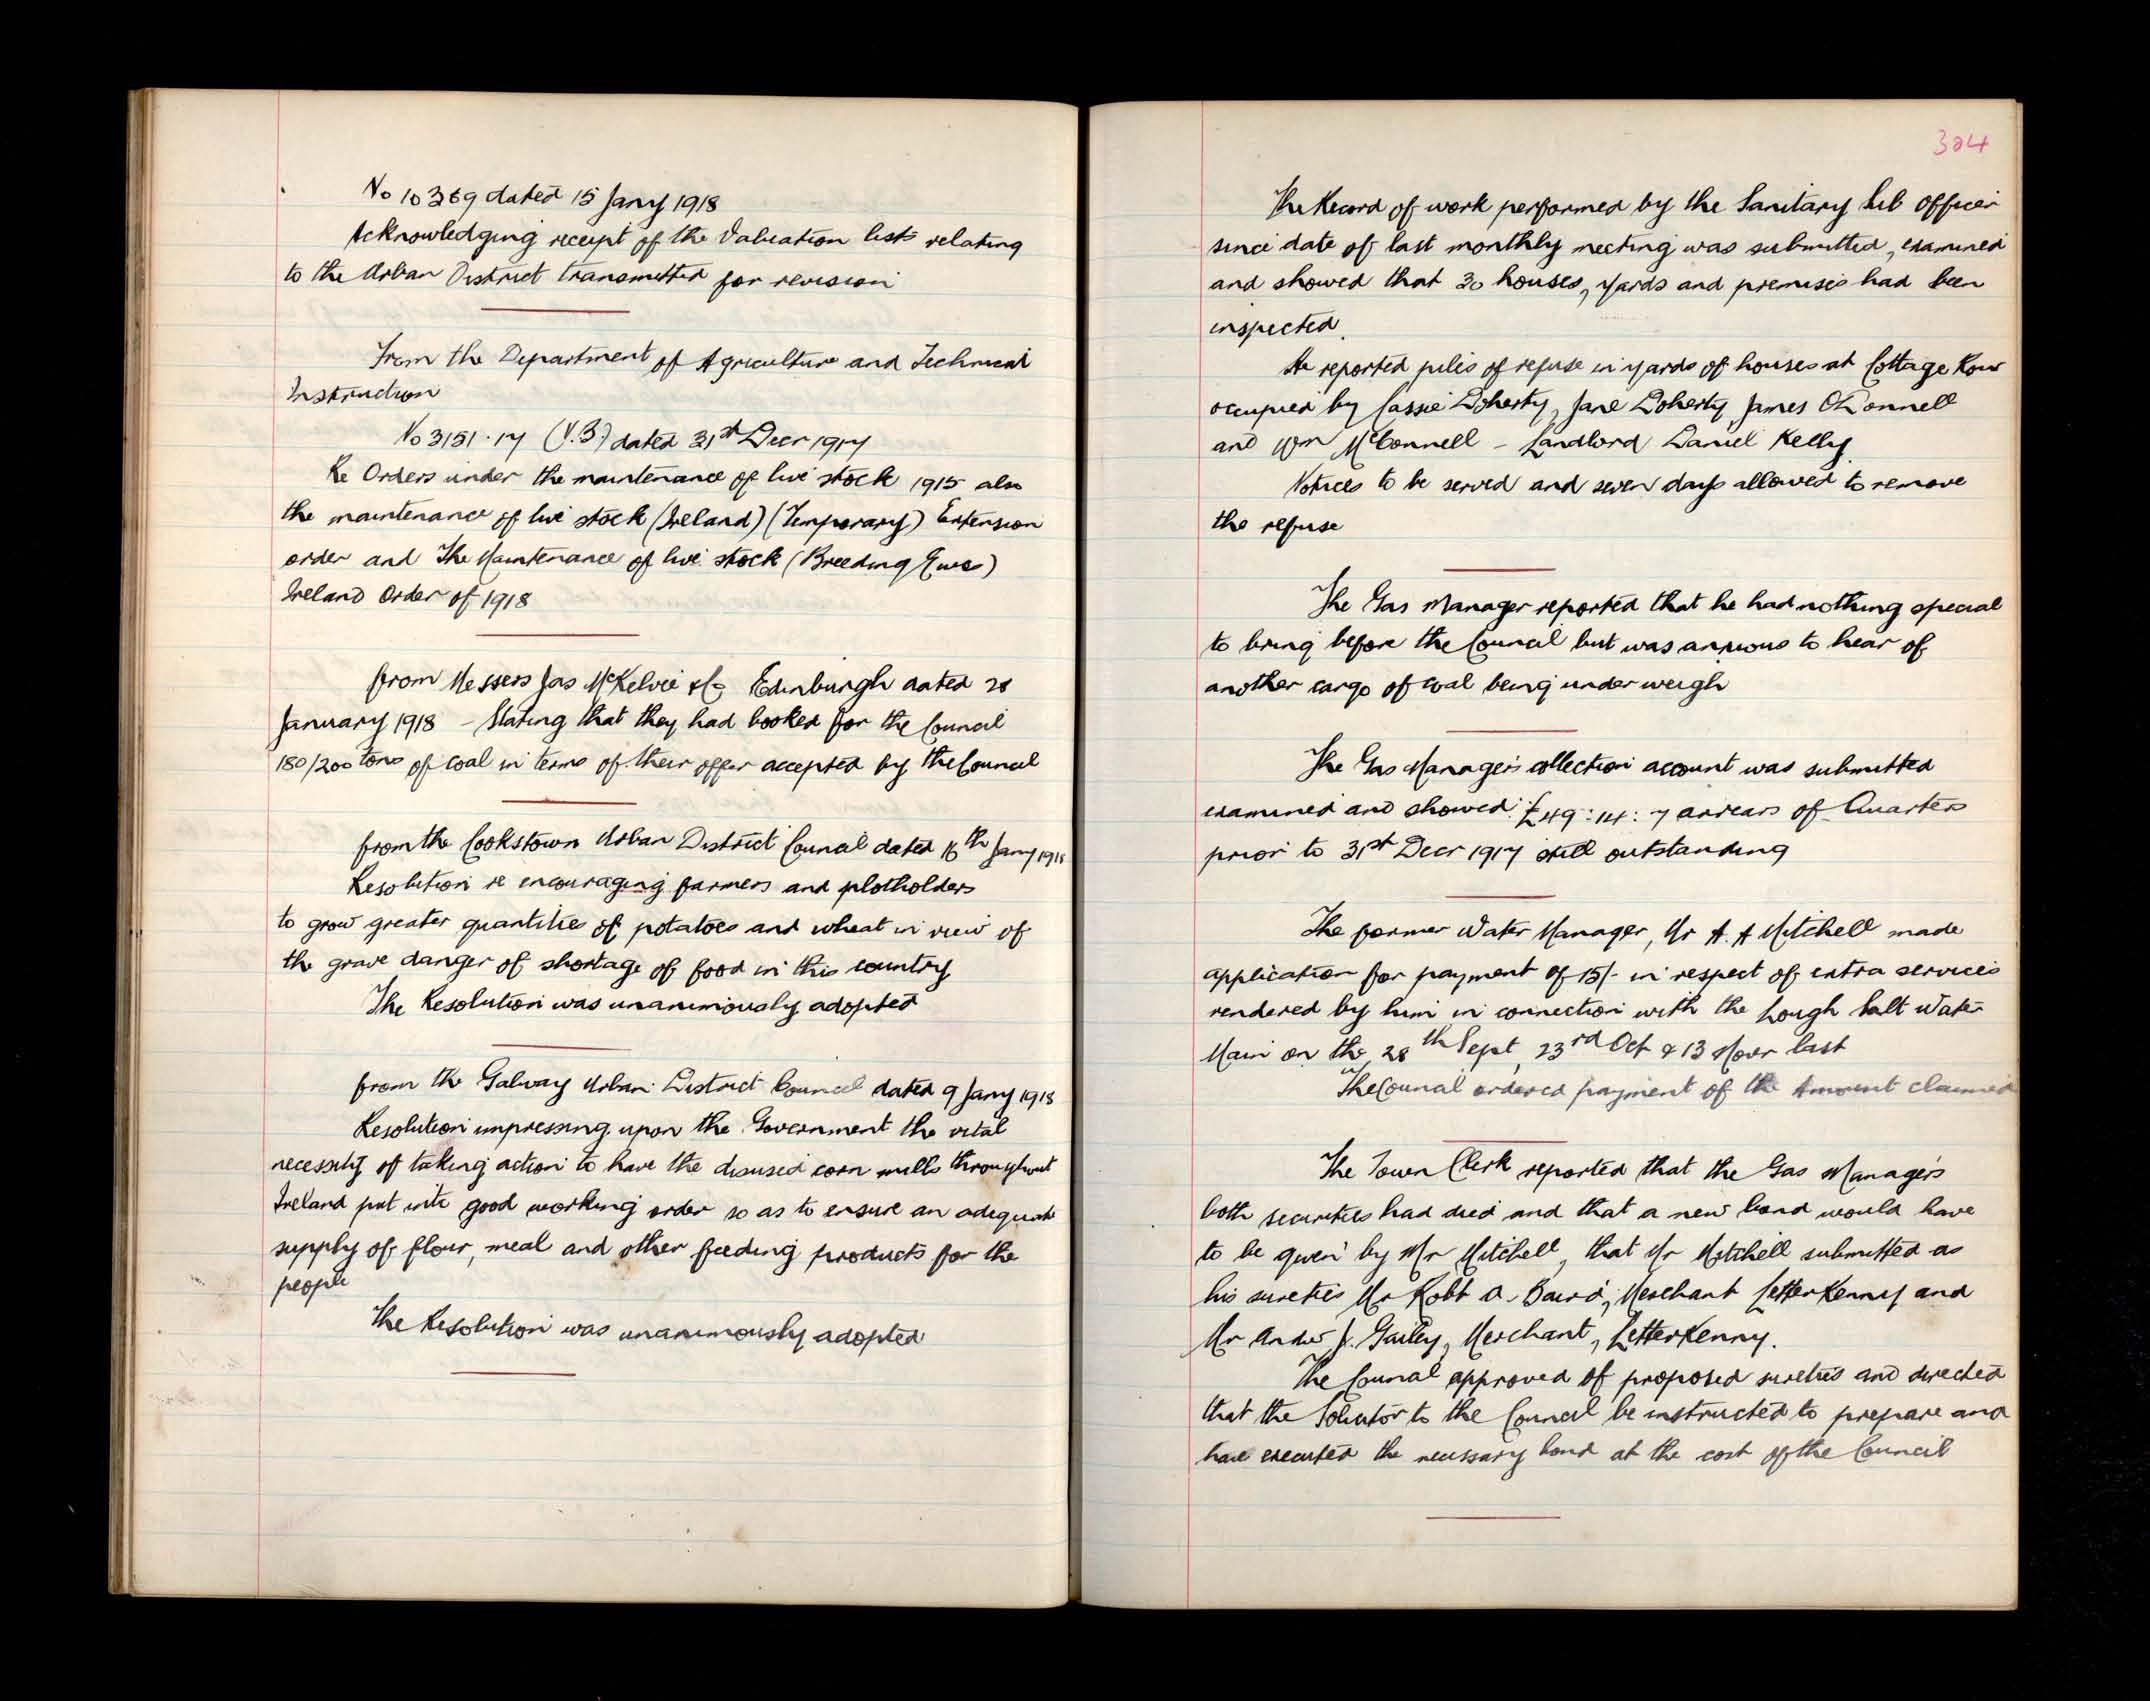 No 10369 dated 15 Jany 1918
Acknowledging receipt of the Valuation lists relating
to the Urban District transmitted for revision
From the Department of Agriculture and Technical
Instruction
No 3151.17 (V.B.) dated 31st Decr 1917
Re Orders under the maintenance of live stock 1915 also
the maintenance of live stock (Ireland) (Temporary) Extension
order and The Maintenance of live stock (Breeding Ewes)
Ireland Order of 1918
from Messers Jas McKelvie & Co Edinburgh dated 28
January 1918 - Stating that they had booked for the Council
180/200 tons of coal in terms of their offer accepted by the Council
from the Cookstown Urban District Council dated 16th Jany 1918
Resolution re encouraging farmers and plotholders
to grow greater quantities of potatoes and wheat in view of
the grave danger of shortage of food in this country
The Resolution was unanimously adopted
from the Galway Urban District Council dated 9 Jany 1918
Resolution impressing upon the Government the vital
necessity of taking action to have the disused corn mills throughout
Ireland put into good working order so as to ensure an adequate
supply of flour, meal and other feeding products for the
people
The Resolution was unanimously adopted
304
The Record of work performed by the Sanitary Sub Officer
since date of last monthly meeting was submitted, examined
and showed that 30 houses, yards and premises had been
inspected.
He reported piles of refuse in yards of houses at Cottage Row
occupied by Cassie Doherty, Jane Doherty, James O'Donnell
and Wm McConnell - Landlord Daniel Kelly.
Notices to be served and seven days allowed to remove
the refuse
The Gas Manager reported that he had nothing special
to bring before the Council but was anxious to hear of
another cargo of coal being under weigh
The Gas Manager's collection account was submitted
examined and showed £49:14:7 arrears of Quarters
prior to 31st Decr 1917 still outstanding
The former Water Manager, Mr A. A Mitchell made
application for payment of 15/- in respect of extra services
rendered by him in connection with the Lough Salt Water
Main on the 28th Sept, 23rd Oct & 13 Novr last
The Council ordered payment of the Amount claimed
The Town Clerk reported that the Gas Manager's
both securities had died and that a new bond would have
to be given by Mr Mitchell, that Mr Mitchell submitted as
his sureties Mr Robt A. Baird, Merchant Letterkenny and
Mr Andw J. Gailey, Merchant, Letterkenny.
The Council approved of proposed sureties and directed
that the Solicitor to the Council be instructed to prepare and
have executed the necessary bond at the cost of the Council